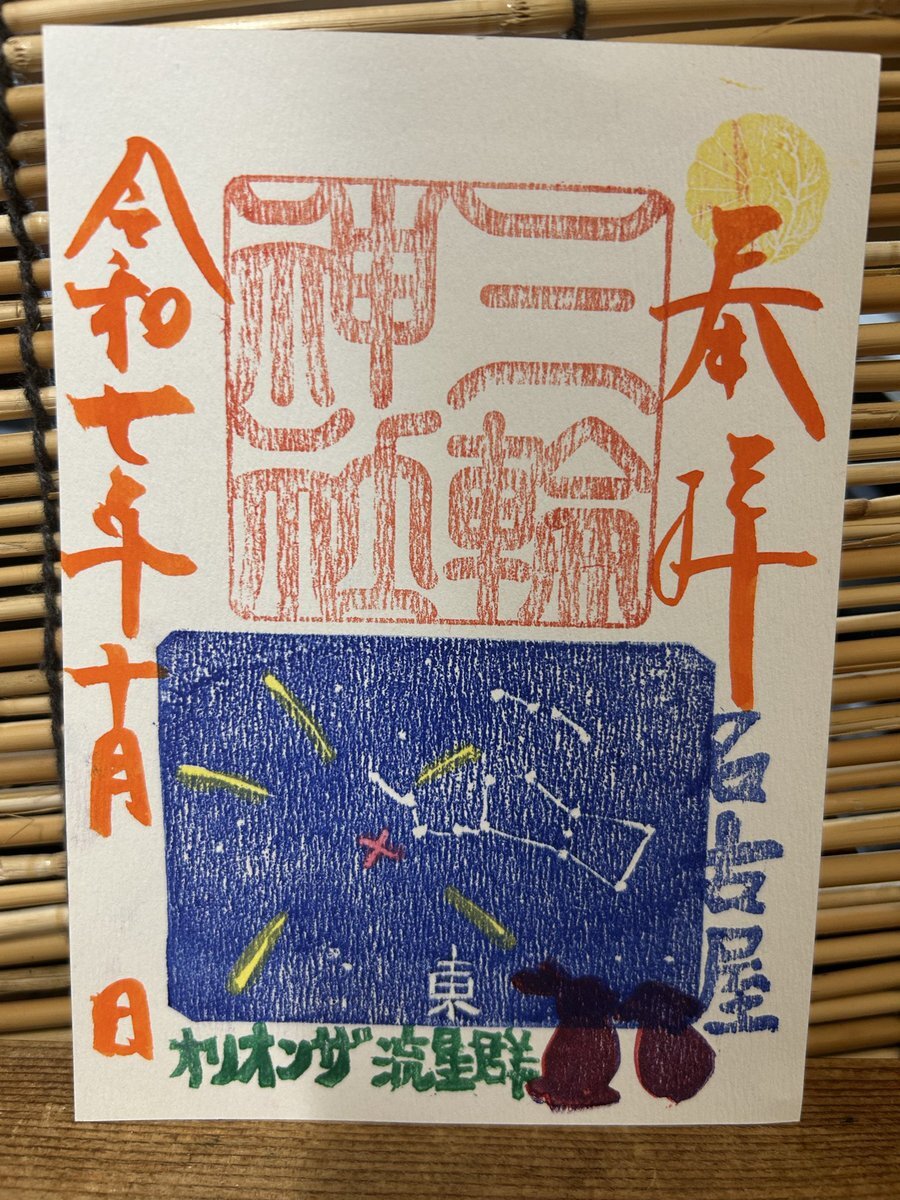 奉拝
名古屋
三輪
神社
東
オリオンザ流星群
令和七年十月 日